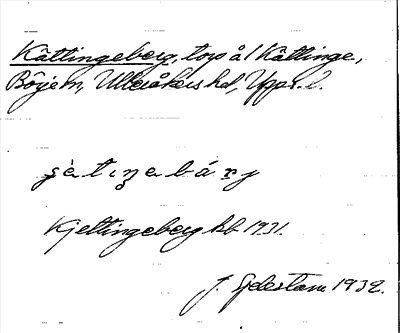 Kättingeberg, torp å l Kättinge,
Börje sn, Ulleråkers hd, Upps. l.
Kjettingeberg kb 1931.
J. Gelestam 1932.